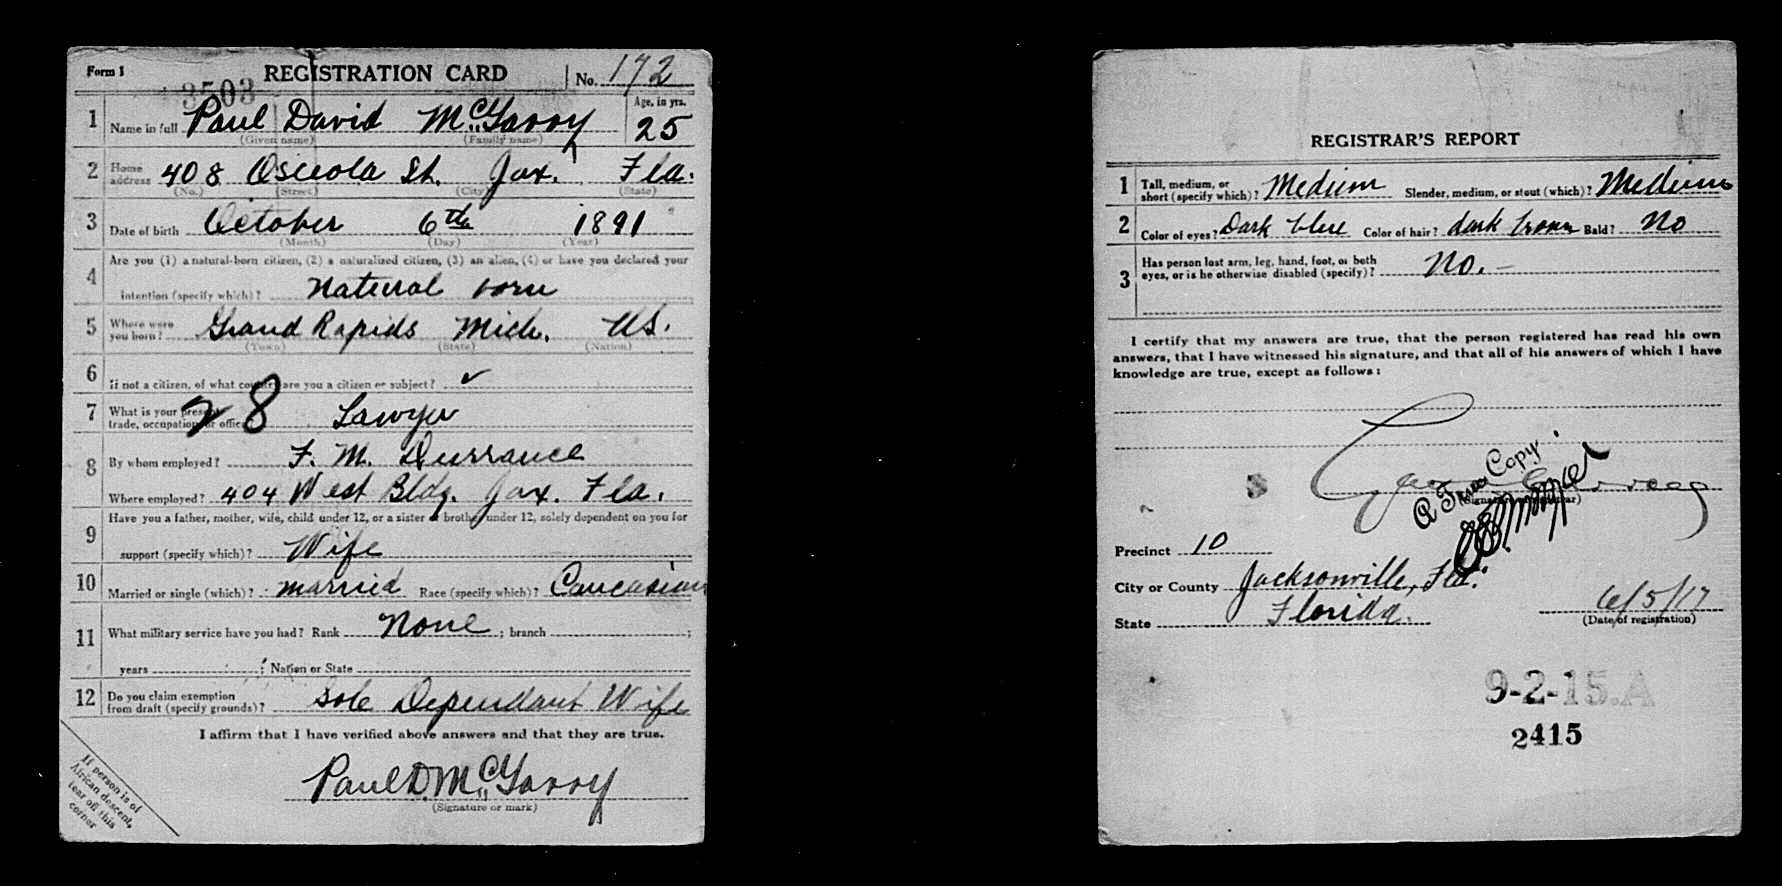 Form 1 REGISTRATION CARD No. 172
3503
Age, in yrs.
1 Name in full Paul David McGarry 25
(Given name) (Family name)
2 Home address 408 Osceola St. Jax. Fla.
(No.) (Street) (City) (State)
3 Date of birth October 6th 1891
(Month) (Day) (Year)
4 Are you (1) a natural-born citizen, (2) a naturalized citizen, (3) an alien, (4) or have you declared your
intention (specify which)? Natural born
5 Where were you born? Grand Rapids Mich. US.
(Town) (State) (Nation)
6 If not a citizen, of what country are you a citizen or subject? ✓
7 What is your present
trade, occupation, or office? 28 Lawyer
8 By whom employed? F. M. Durrance
Where employed? 404 West Bldg. Jax. Fla.
9 Have you a father, mother, wife, child under 12, or a sister or brother under 12, solely dependent on you for
support (specify which)? Wife
10 Married or single (which)? married Race (specify which)? Caucasian
11 What military service have you had? Rank None ; branch ;
years ; Nation or State
12 Do you claim exemption
from draft (specify grounds)? Sole Dependant Wife
I affirm that I have verified above answers and that they are true.
Paul D. McGarry
(Signature or mark)
If person is of
African descent,
tear off this
corner
REGISTRAR'S REPORT
1 Tall, medium, or
short (specify which)? Medium Slender, medium, or stout (which)? Medium
2 Color of eyes? Dark blue Color of hair? dark brown Bald? No
3 Has person lost arm, leg, hand, foot, or both
eyes, or is he otherwise disabled (specify)? No.-
I certify that my answers are true, that the person registered has read his own
answers, that I have witnessed his signature, and that all of his answers of which I have
knowledge are true, except as follows:
A True Copy
(Signature of registrar)
Precinct 10
City or County Jacksonville, Fla.
State Florida. 6/5/17
(Date of registration)
9-2-15.A
2415